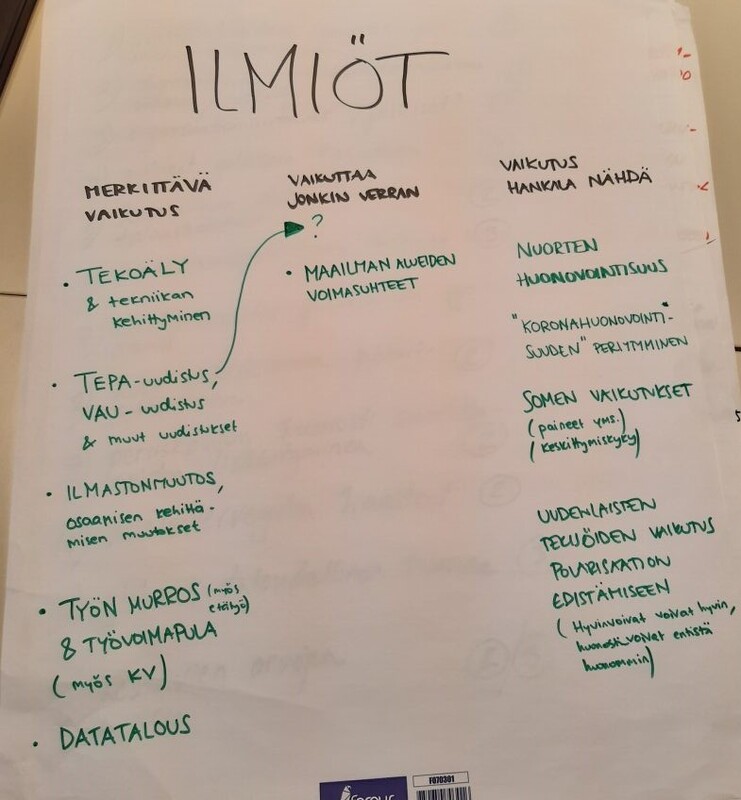 ILMIÖT
MERKITTÄVÄ
VAIKUTUS
• TEKOÄLY
& tekniikan
kehittyminen
• TEPA-uudistus,
VAU-uudistus
& muut uudistukset
• ILMASTONMUUTOS,
osaamisen kehittä-
misen muutokset
• TYÖN MURROS (myös
etätyö)
& TYÖVOIMAPULA
(myös KV)
• DATATALOUS
VAIKUTTAA
JONKIN VERRAN
?
• MAAILMAN ALUEIDEN
VOIMASUHTEET
VAIKUTUS
HANKALA NÄHDÄ
NUORTEN
HUONOVOINTISUUS
"KORONAHUONOVOINTI-
SUUDEN" PERIYTYMINEN
SOMEN VAIKUTUKSET
(paineet yms.)
(keskittymiskyky)
UUDENLAISTEN
TEKIJÖIDEN VAIKUTUS
POLARISAATION
EDISTÄMISEEN
(Hyvinvoivat voivat hyvin,
huonosti voivat entistä
huonommin)
F070301